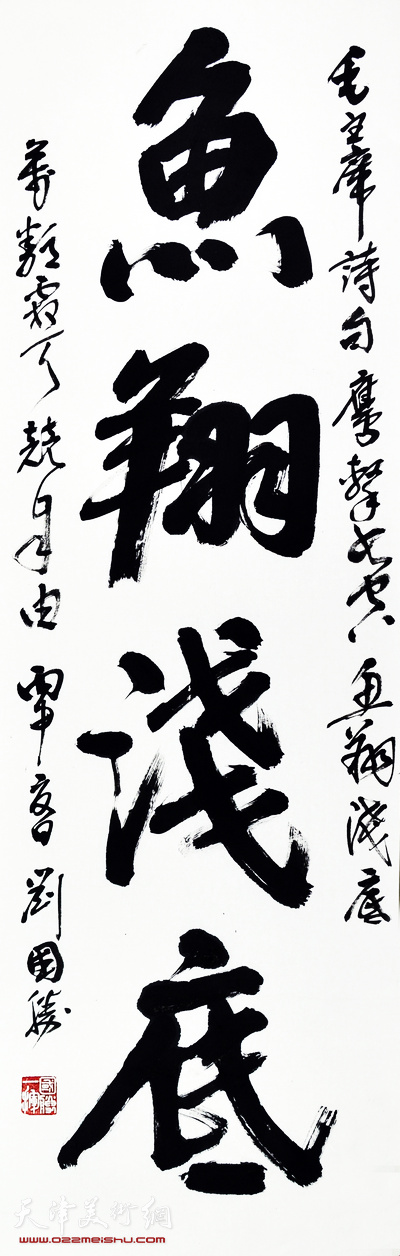 魚翔淺底
毛主席詩句鷹擊長空魚翔淺底
萬類霜天競自由甲午春劉國勝
天津美術網
www.022meishu.com